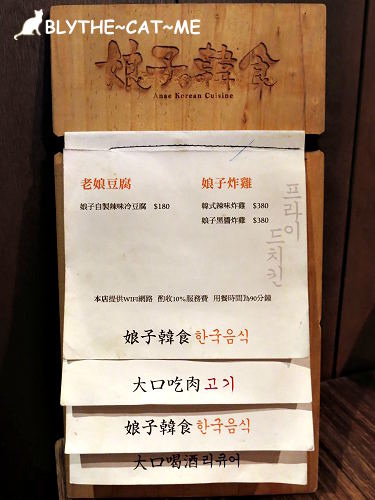 BLYTHE~CAT~ME
娘子韓食
Anae Korean Cuisine
老娘豆腐
娘子自製辣味冷豆腐 $180
娘子炸雞
韓式辣味炸雞 $380
娘子黑醬炸雞 $380
프라이
드치킨
本店提供WIFI網路 酌收10%服務費 用餐時間為90分鐘
娘子韓食 한국음식
大口吃肉 고기
娘子韓食 한국음식
大口喝酒 리큐어